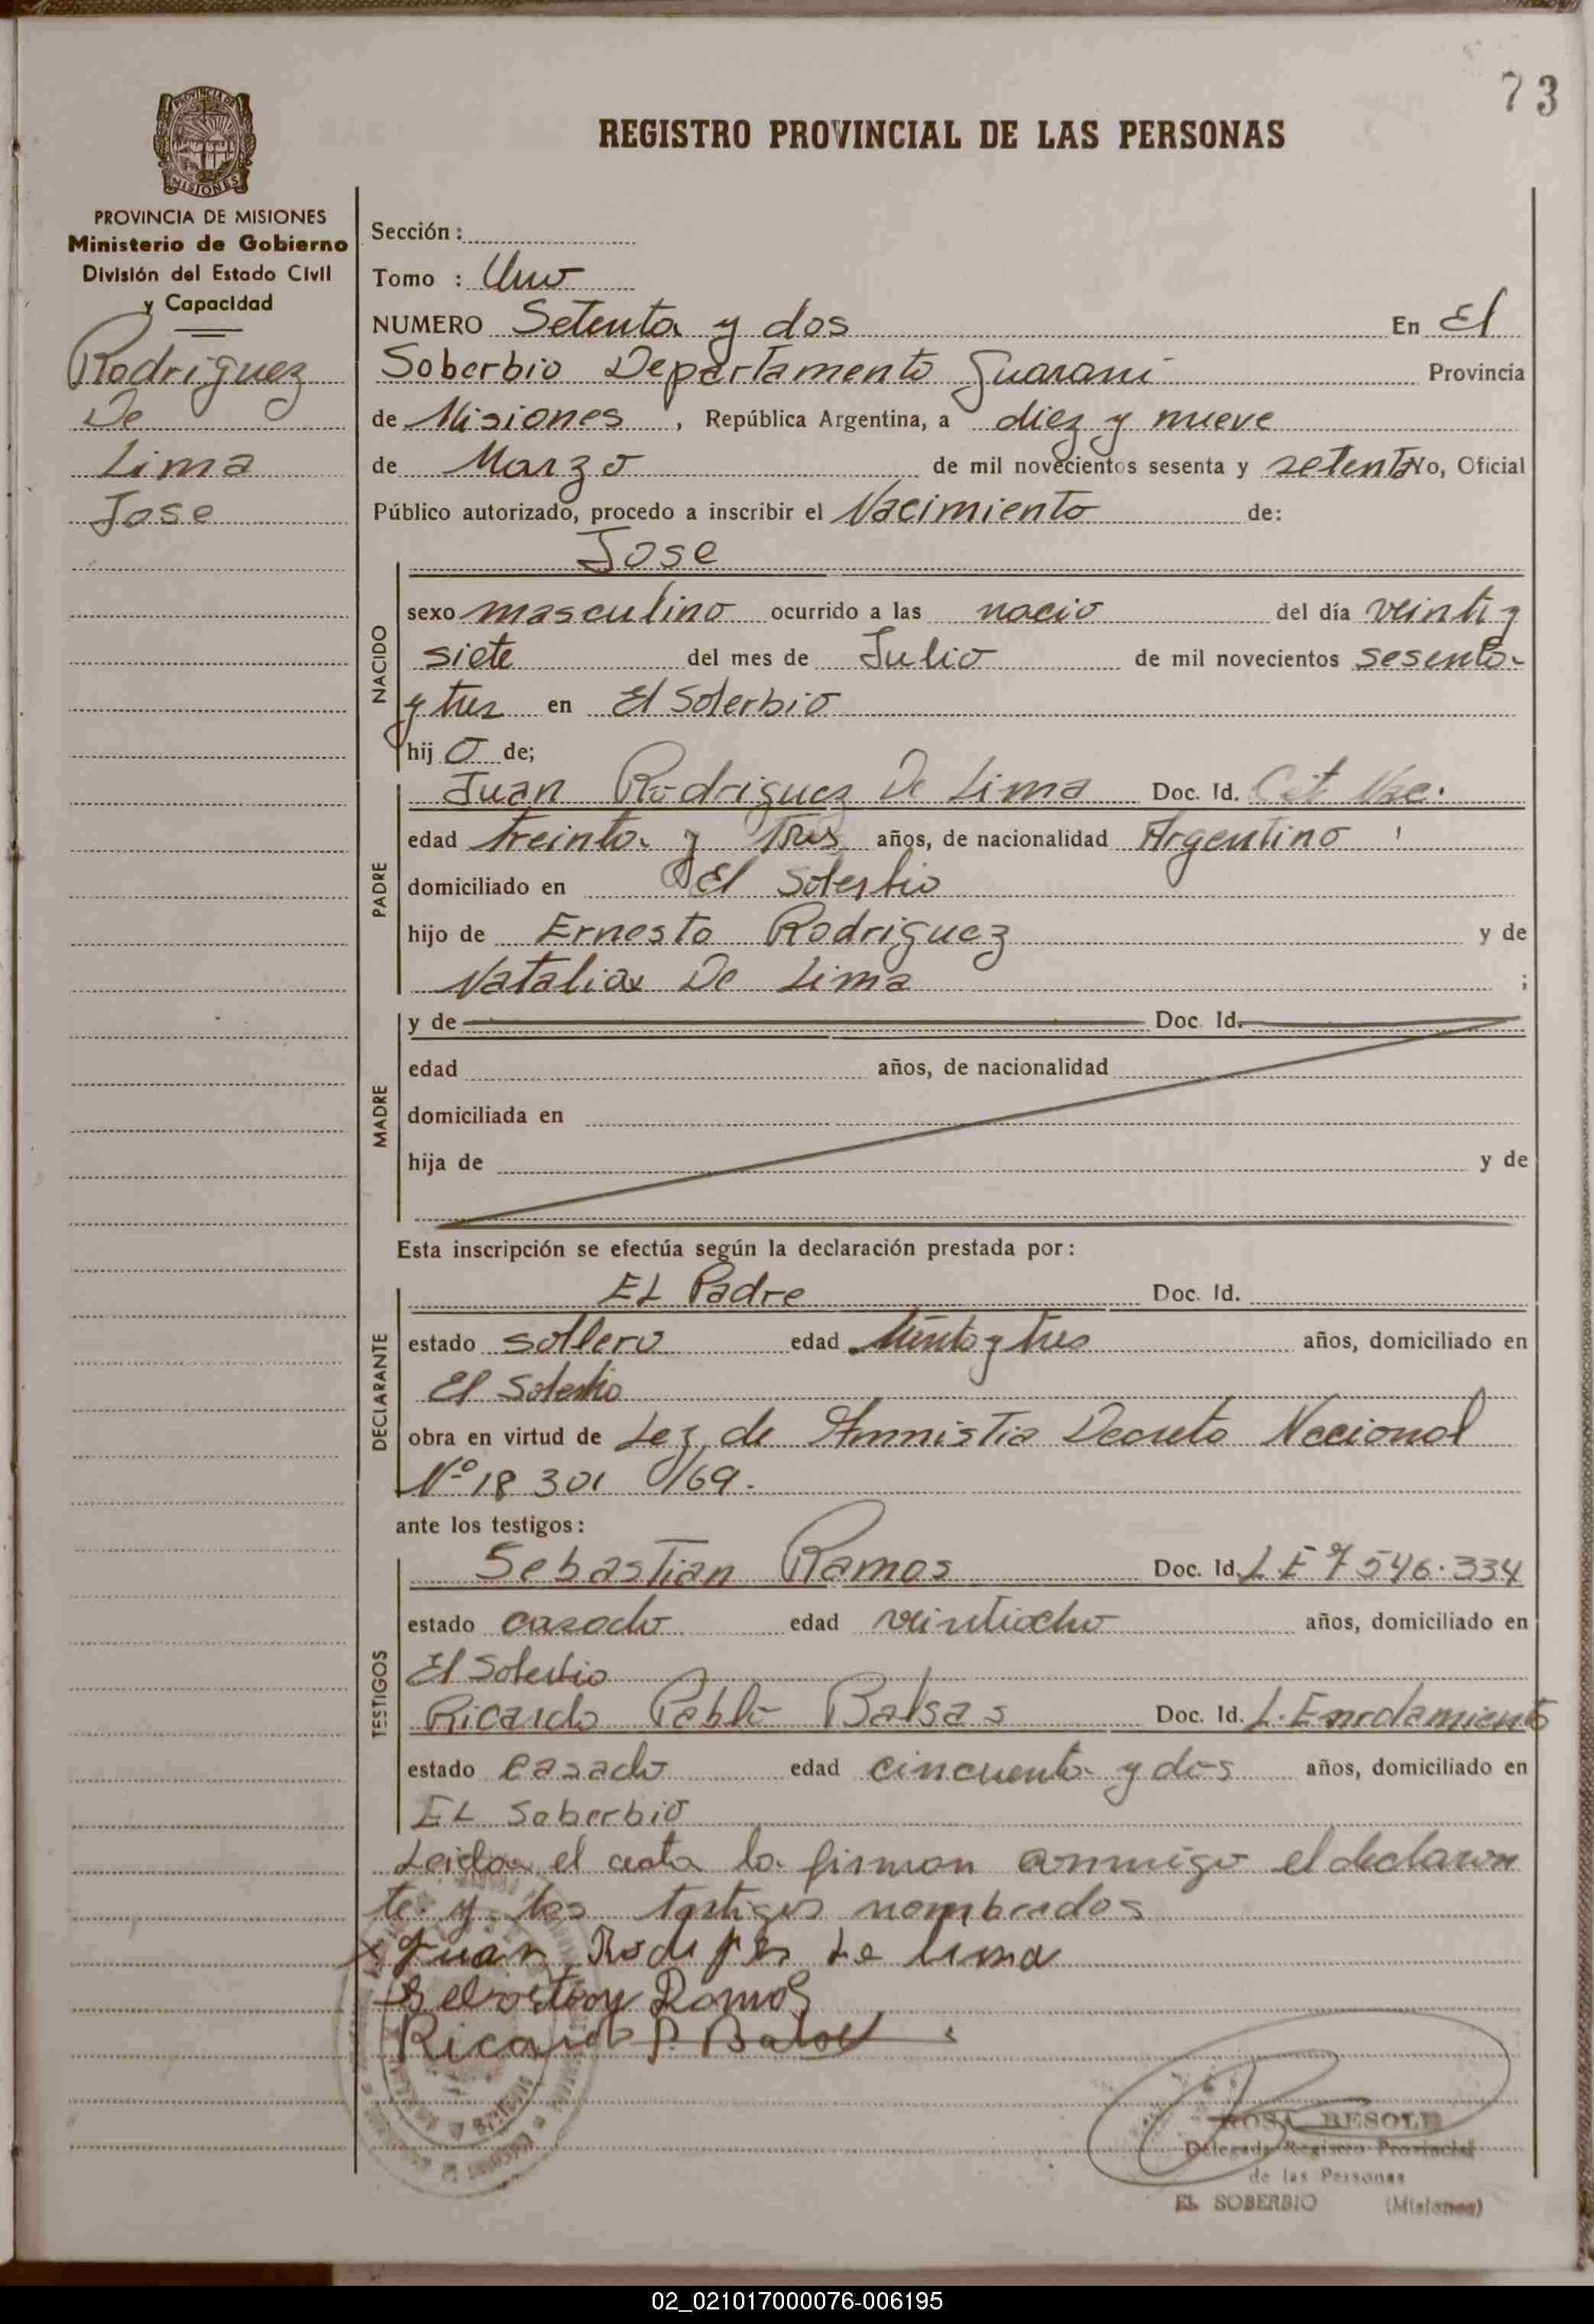 73
REGISTRO PROVINCIAL DE LAS PERSONAS
PROVINCIA DE MISIONES
MISIONES
PROVINCIA DE MISIONES
Ministerio de Gobierno
División del Estado Civil
y Capacidad
Rodriguez
De
Lima
Jose
Sección:
Tomo : Uno
NUMERO Setenta y dos En El
Soberbio Departamento Guarani Provincia
de Misiones, República Argentina, a diez y nueve
de Marzo de mil novecientos sesenta y setenta Yo, Oficial
Público autorizado, procedo a inscribir el Nacimiento de:
NACIDO
Jose
sexo masculino ocurrido a las nacio del día veinti y
siete del mes de Julio de mil novecientos sesenta
y tres en El Soberbio
hij o de;
PADRE
Juan Rodriguez De Lima Doc. Id. Cit Nac.
edad treinta y Tres años, de nacionalidad Argentino
domiciliado en El Soberbio
hijo de Ernesto Rodriguez y de
Natalia De Lima ;
MADRE
y de Doc. Id.
edad años, de nacionalidad
domiciliada en
hija de y de
Esta inscripción se efectúa según la declaración prestada por:
DECLARANTE
EL Padre Doc. Id.
estado soltero edad treinta y tres años, domiciliado en
El Soberbio
obra en virtud de Ley de Amnistia Decreto Nacional
Nº 18 301 /69.
ante los testigos:
TESTIGOS
Sebastian Ramos Doc. Id. L.E 7546.334
estado casado edad veintiocho años, domiciliado en
El Soberbio
Ricardo Pablo Balsas Doc. Id. L. Enrolamiento
estado casado edad cincuenta y dos años, domiciliado en
EL Soberbio
Leida el acta la firman conmigo el declaran
te y los testigos nombrados
x Juan Rodriges de lima
Sebastian Ramos
Ricardo P. Balsas
ROSA BESOLD
Delegada Registro Provincial
de las Personas
EL SOBERBIO (Misiones)
02_021017000076-006195